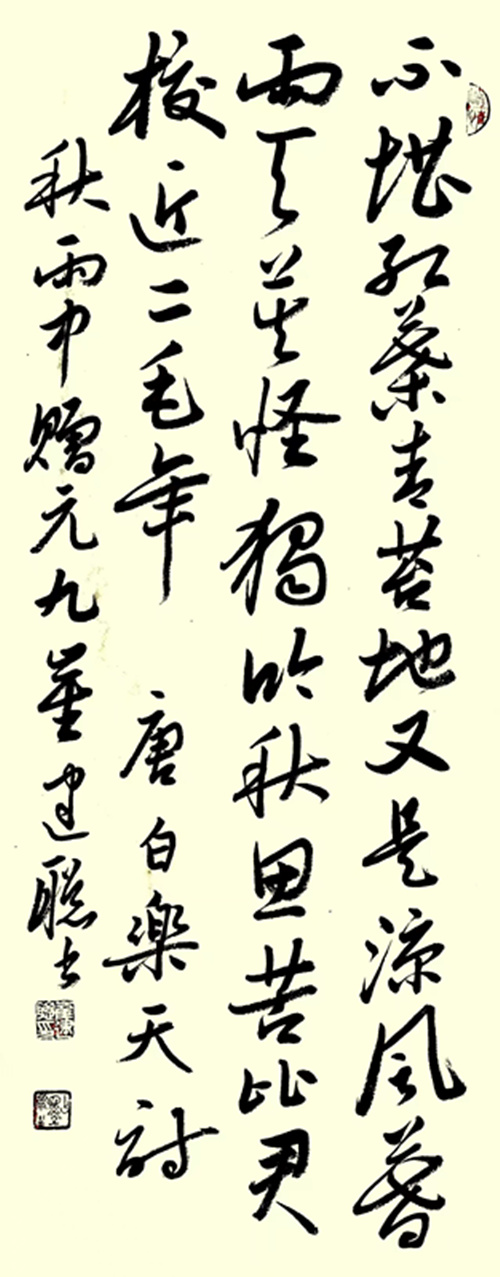 不堪紅葉青苔地又是涼風暮
雨天莫怪獨吟秋思苦比君
校近二毛年 唐白樂天詩
秋雨中贈元九 崔建聰书